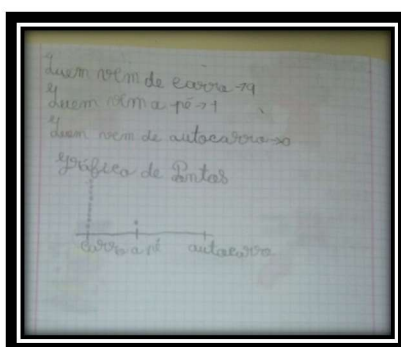 Quem vem de carro → 19
Quem vem a pé → 1
Quem vem de autocarro → 0
Gráfico de Pontos
carro a pé autocarro